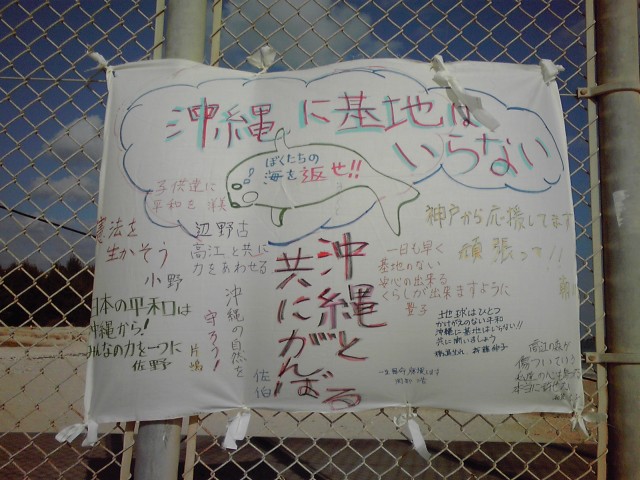 沖縄に基地は
いらない
ぼくたちの
海を返せ!!
子供達に
平和を
憲法を
生かそう
小野
辺野古
高江と共に
力をあわせる
日本の平和は
沖縄から!
みんなの力を一つに
佐野
沖縄の自然を
守ろう!
片嶋
佐伯
沖縄と
共にがんばる
一日も早く
基地のない
安心の出来る
くらしが出来ますように
神戸から応援してます
頑張って!!
地球はひとつ
かけがえのない平和
沖縄に基地はいらない!!
共に闘いましょう
高江の森が
傷ついている
本当に